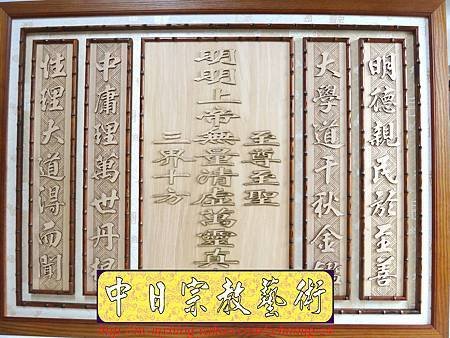 明德親民於至善
大學道千秋金
至尊至聖
明明上帝無量清虛萬靈真
三界十方
中庸理萬世丹
性理大道得而聞
中日宗教藝術